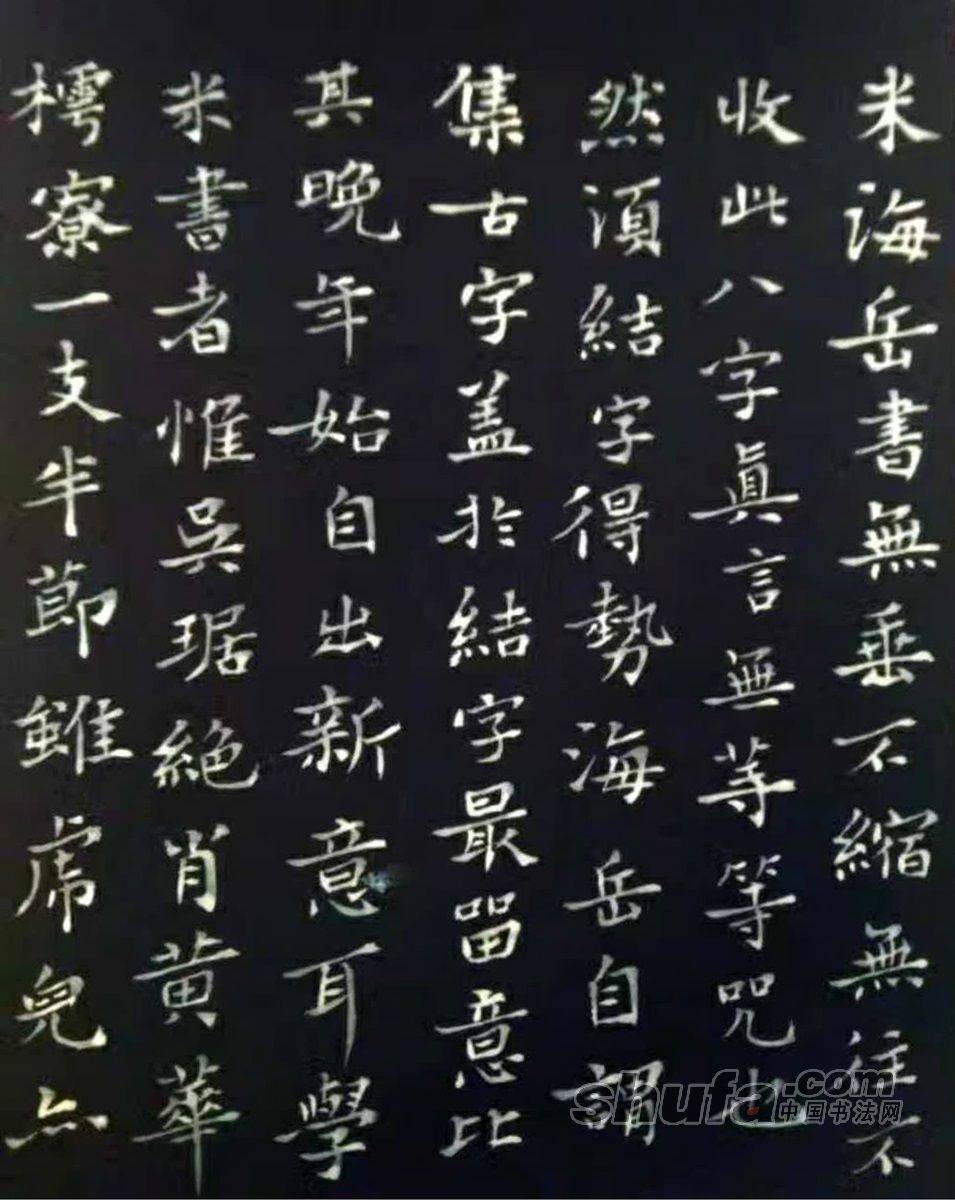 米海岳書無垂不縮無往不
收此八字真言無等等咒也
然須結字得勢海岳自謂
集古字盖於結字最畱意比
其晚年始自出新意耳學
米書者惟吳琚絕肖黄華
樗寮一支半節雖虎兒亦
shufa.com
中国书法网